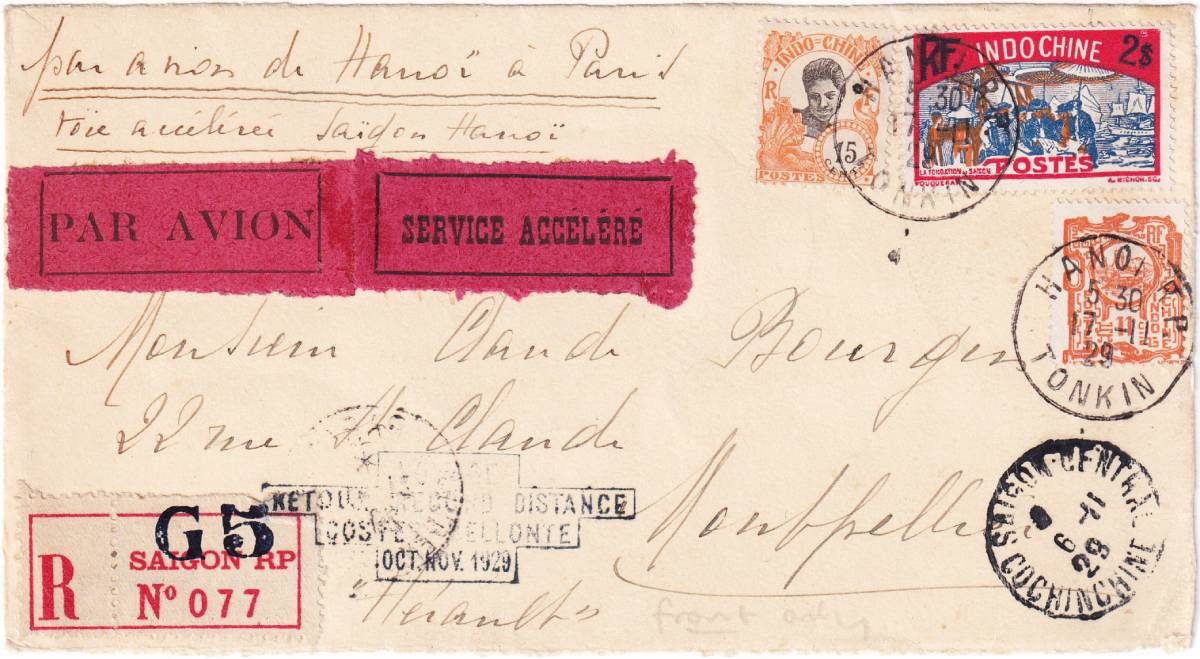 par avion de Hanoï à Paris
voie accélérée Saïgon Hanoï
PAR AVION
SERVICE ACCÉLÉRÉ
INDO-CHINE
R
15
CENTS
POSTES
RF
INDOCHINE
2$
LA FONDATION SAIGON
POSTES
HANOI
30
17
TONKIN
RF
INDOCHINE
11c
HANOI R.P.
5 30
17 -11
29
TONKIN
Monsieur Claude Bourgin
22 rue St Claude
Montpellier
"Hérault"
RETOUR RECORD DISTANCE
COSTE BELLONTE
OCT. NOV. 1929
SAIGON-CENTRAL
6 -11
29
COCHINCHINE
G5
R
SAIGON RP
Nº 077
front only